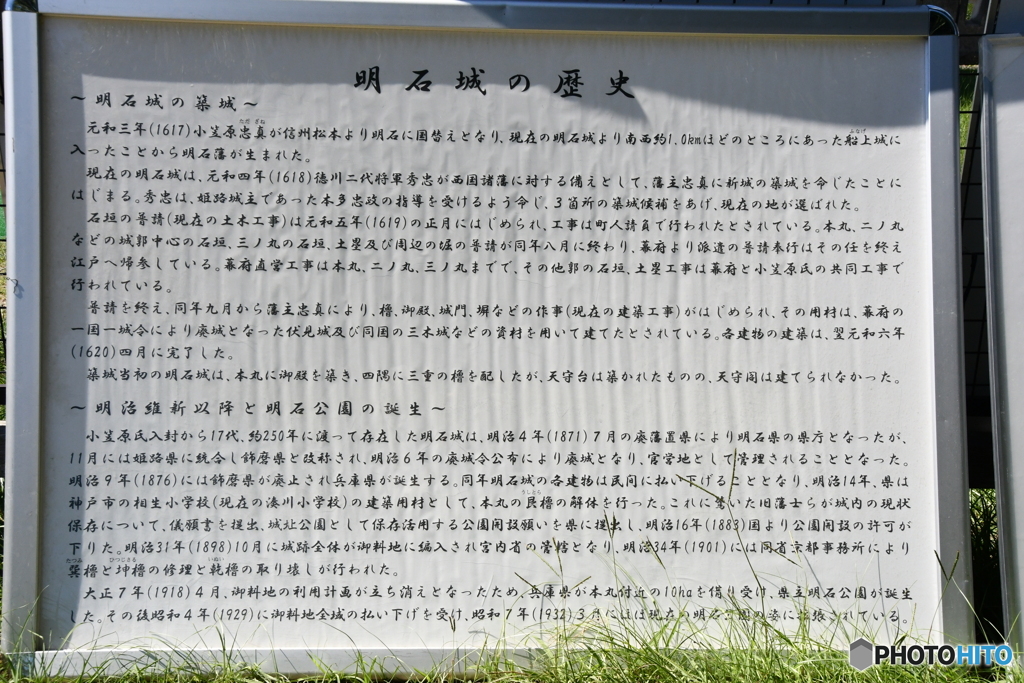 明石城の歴史
～明石城の築城～
元和三年(1617)小笠原忠真が信州松本より明石に国替えとなり、現在の明石城より南西約1.0kmほどのところにあった船上城に
入ったことから明石藩が生まれた。
現在の明石城は、元和四年(1618)徳川二代将軍秀忠が西国諸藩に対する備えとして、藩主忠真に新城の築城を命じたことに
はじまる。秀忠は、姫路城主であった本多忠政の指導を受けるよう命じ、3箇所の築城候補をあげ、現在の地が選ばれた。
石垣の普請(現在の土木工事)は元和五年(1619)の正月にはじめられ、工事は町人請負で行われたとされている。本丸、二ノ丸
などの城郭中心の石垣、三ノ丸の石垣、土塁及び周辺の堀の普請が同年八月に終わり、幕府より派遣の普請奉行はその任を終え
江戸へ帰参している。幕府直営工事は本丸、二ノ丸、三ノ丸までで、その他郭の石垣、土塁工事は幕府と小笠原氏の共同工事で
行われている。
普請を終え、同年九月から藩主忠真により、櫓、御殿、城門、塀などの作事(現在の建築工事)がはじめられ、その用材は、幕府の
一国一城令により廃城となった伏見城及び同国の三木城などの資材を用いて建てたとされている。各建物の建築は、翌元和六年
(1620)四月に完了した。
築城当初の明石城は、本丸に御殿を築き、四隅に三重の櫓を配したが、天守台は築かれたものの、天守閣は建てられなかった。
～明治維新以降と明石公園の誕生～
小笠原氏入封から17代、約250年に渡って存在した明石城は、明治4年(1871)7月の廃藩置県により明石県の県庁となったが、
11月には姫路県に統合し飾磨県と改称され、明治6年の廃城令公布により廃城となり、官営地として管理されることとなった。
明治9年(1876)には飾磨県が廃止され兵庫県が誕生する。同年明石城の各建物は民間に払い下げることとなり、明治14年、県は
神戸市の相生小学校(現在の湊川小学校)の建築用材として、本丸の艮櫓の解体を行った。これに驚いた旧藩士らが城内の現状
保存について、儀願書を提出、城址公園として保存活用する公園開設願いを県に提出し、明治16年(1883)国より公園開設の許可が
下りた。明治31年(1898)10月に城跡全体が御料地に編入され宮内省の管轄となり、明治34年(1901)には同省京都事務所により
巽櫓と坤櫓の修理と乾櫓の取り壊しが行われた。
大正7年(1918)4月、御料地の利用計画が立ち消えとなったため、兵庫県が本丸付近の10haを借り受け、県立明石公園が誕生
した。その後昭和4年(1929)に御料地全域の払い下げを受け、昭和7年(1932)3月にほぼ現在の明石公園の姿に拡張されている。
PHOTOHITO